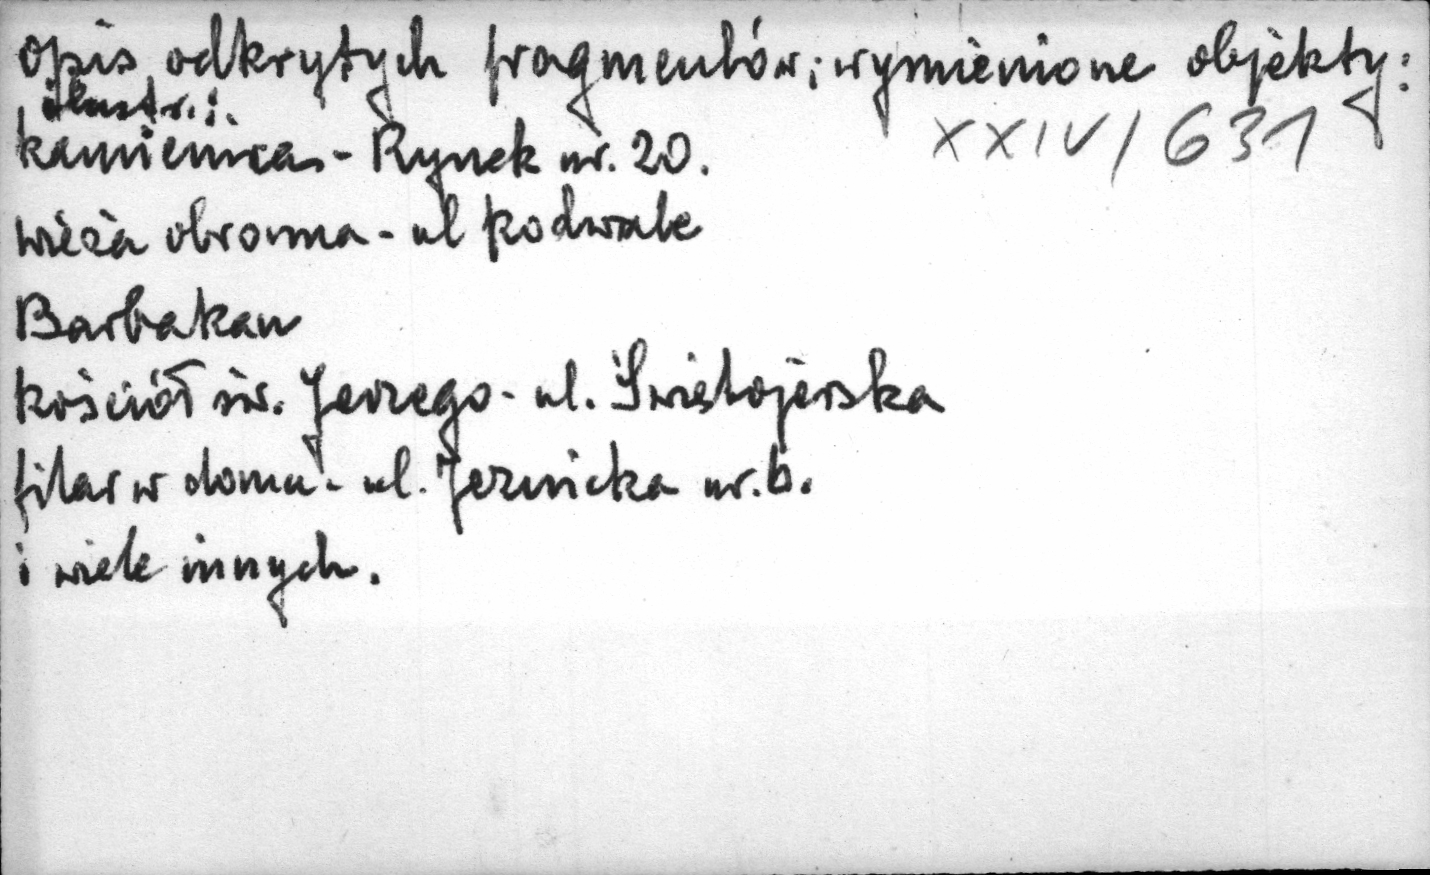 opis odkrytych fragmentów; wymienione objekty:
ilustr.:
XXIV/631
kamienica - Rynek nr. 20.
wieża obronna - ul Podwale
Barbakan
kościół św. Jerzego - ul. Świętojerska
filar w domu - ul. Jezuicka nr. 6.
i wiele innych.